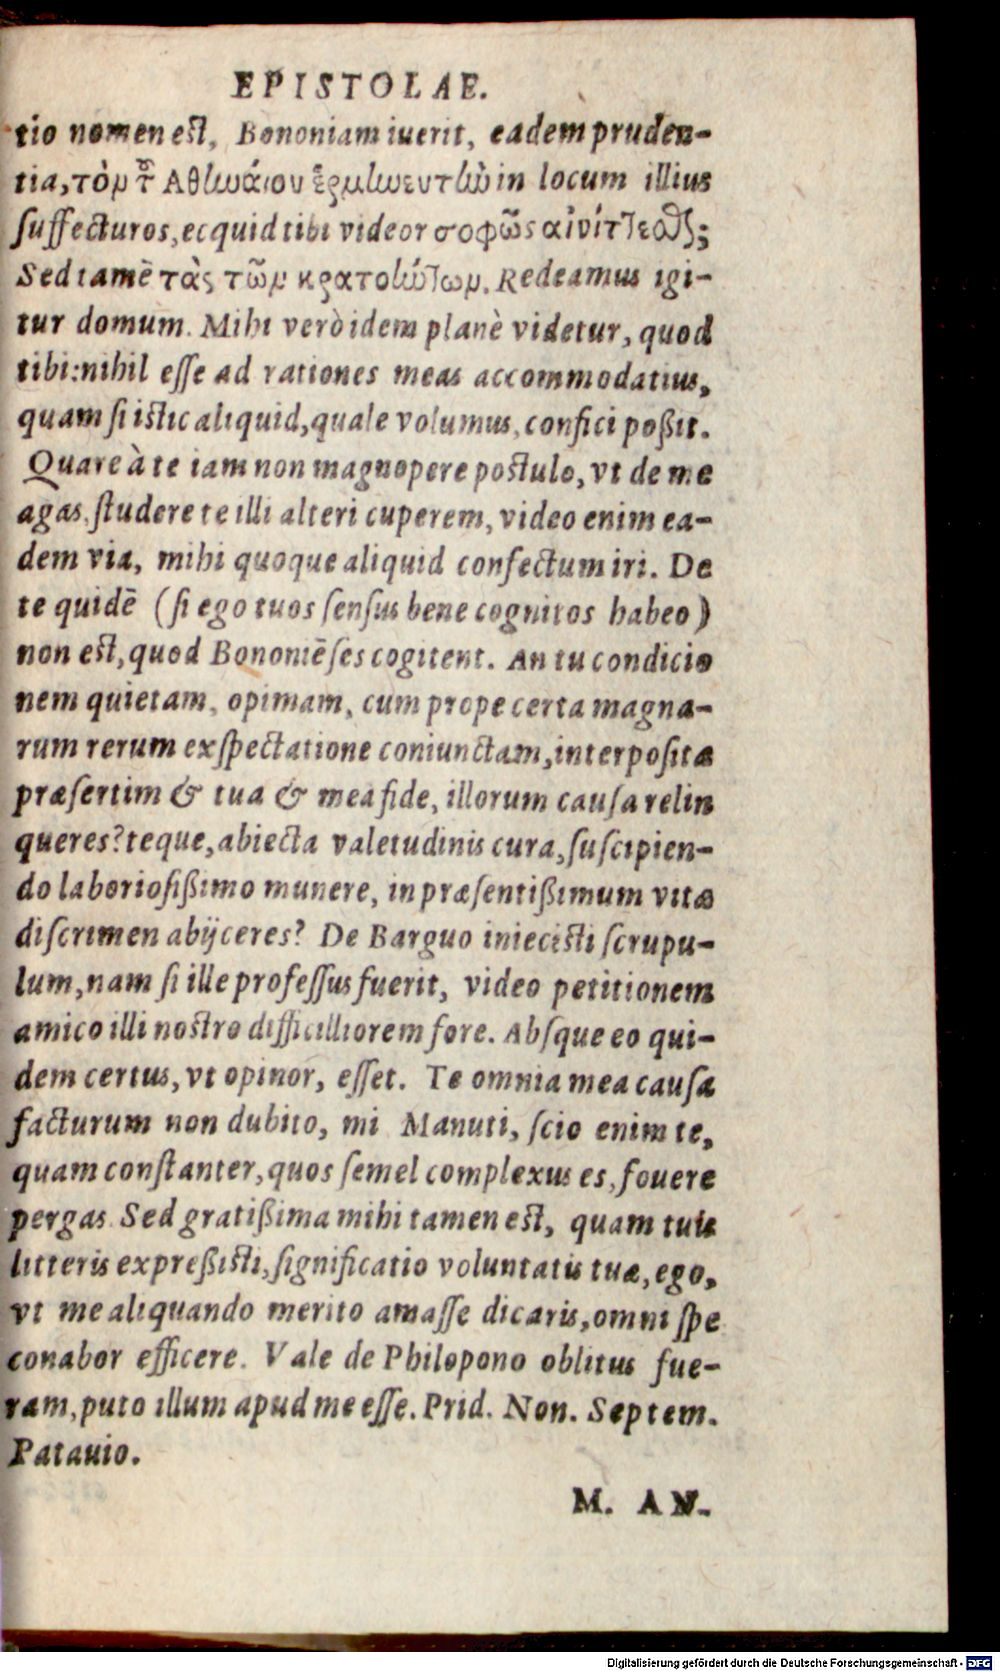 EPISTOLAE.
tio nomen est, Bononiam iuerit, eadem pruden-
tia, τὸμ τ Ἀθlωάιου ἑρμlωευτlὼ in locum illius
ſuffecturos, ecquid tibi videor σοφῶς αἰνίτεσθ;
Sed tamẽ τὰς τῶμ κρατούτωμ. Redeamus igi-
tur domum. Mihi verò idem planè videtur, quod
tibi: nihil eſſe ad rationes meas accommodatius,
quam ſi istic aliquid, quale volumus, confici poßit.
Quare à te iam non magnopere postulo, vt de me
agas. ſtudere te illi alteri cuperem, video enim ea-
dem via, mihi quoque aliquid confectum iri. De
te quidẽ (ſi ego tuos ſenſus bene cognitos habeo)
non est, quod Bononiẽſes cogitent. An tu condicio
nem quietam, opimam, cum prope certa magna-
rum rerum exſpectatione coniunctam, interpoſita
præſertim & tua & mea fide, illorum cauſa relin
queres? teque, abiecta valetudinis cura, ſuſcipien-
do laborioſißimo munere, in præſentißimum vitæ
diſcrimen abijceres? De Barguo iniecisti ſcrupu-
lum, nam ſi ille profeſſus fuerit, video petitionem
amico illi nostro difficilliorem fore. Abſque eo qui-
dem certus, vt opinor, eſſet. Te omnia mea cauſa
facturum non dubito, mi Manuti, ſcio enim te,
quam conſtanter, quos ſemel complexus es, fouere
pergas. Sed gratißima mihi tamen est, quam tuis
litteris expreßisti, ſignificatio voluntatis tuæ, ego,
vt me aliquando merito amaſſe dicaris, omni ſpe
conabor efficere. Vale de Philopono oblitus fue-
ram, puto illum apud me eſſe. Prid. Non. Septem.
Patauio.
M. AN-
Digitalisierung gefördert durch die Deutsche Forschungsgemeinschaft - DFG